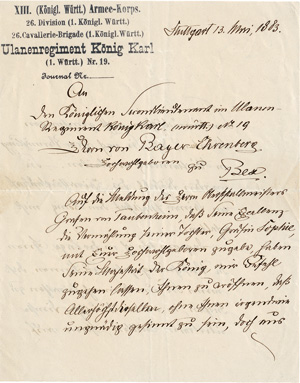 XIII. (Königl. Württ.) Armee-Korps.
26. Division (1. Königl. Württ.)
26. Cavallerie-Brigade (1. Königl. Württ.)
Ulanenregiment König Karl
(1. Württ.) Nr. 19.
Journal No.
Stuttgart 13. Mai, 1885.
An
den Königlichen Secondlieutenant im Ulanen-
Regiment König Karl (württ.) No 19
Herrn von Bayer Ehrenberg
Hochwohlgeboren
zu
Auf die Meldung des Herrn
Grafen von Taubenheim, daß Seine Excellenz
die Vermählung seiner Tochter, Gräfin Sophie
mit Euer Hochwohlgeboren zugebe, haben
Seine Majestät der König, mir Befehl
zugehen lassen, Ihnen zu eröffnen, daß
Allerhöchstdieselben, ohne Ihnen irgendwie
ungnädig gesinnt zu sein, doch aus